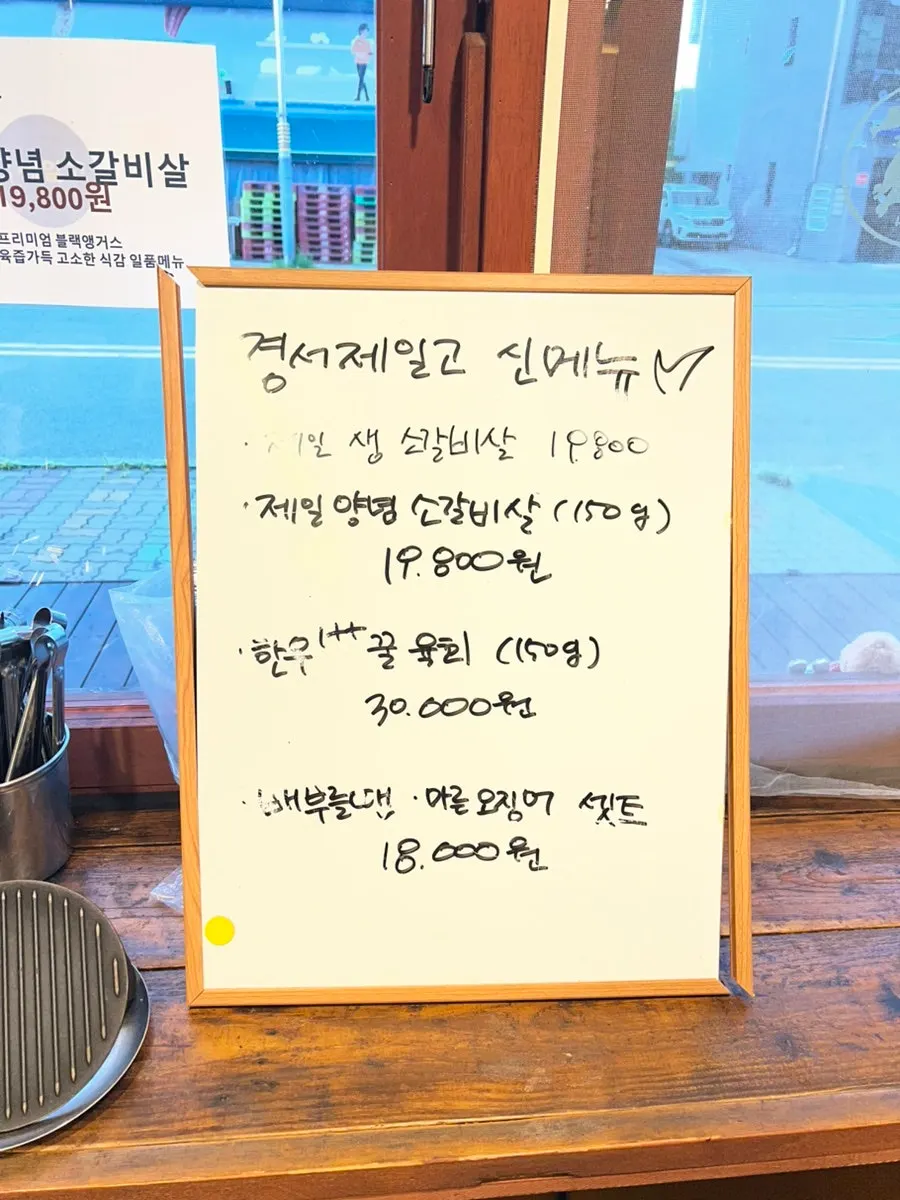 양념 소갈비살
19,800원
프리미엄 블랙앵거스
육즙가득 고소한 식감 일품메뉴
경서제일고 신메뉴
· 제일 생 소갈비살 19.800
· 제일 양념 소갈비살 (150g)
19.800원
· 한우 1++ 꿀 육회 (150g)
30.000원
· 배부를땐 · 마른오징어 셋트
18.000원